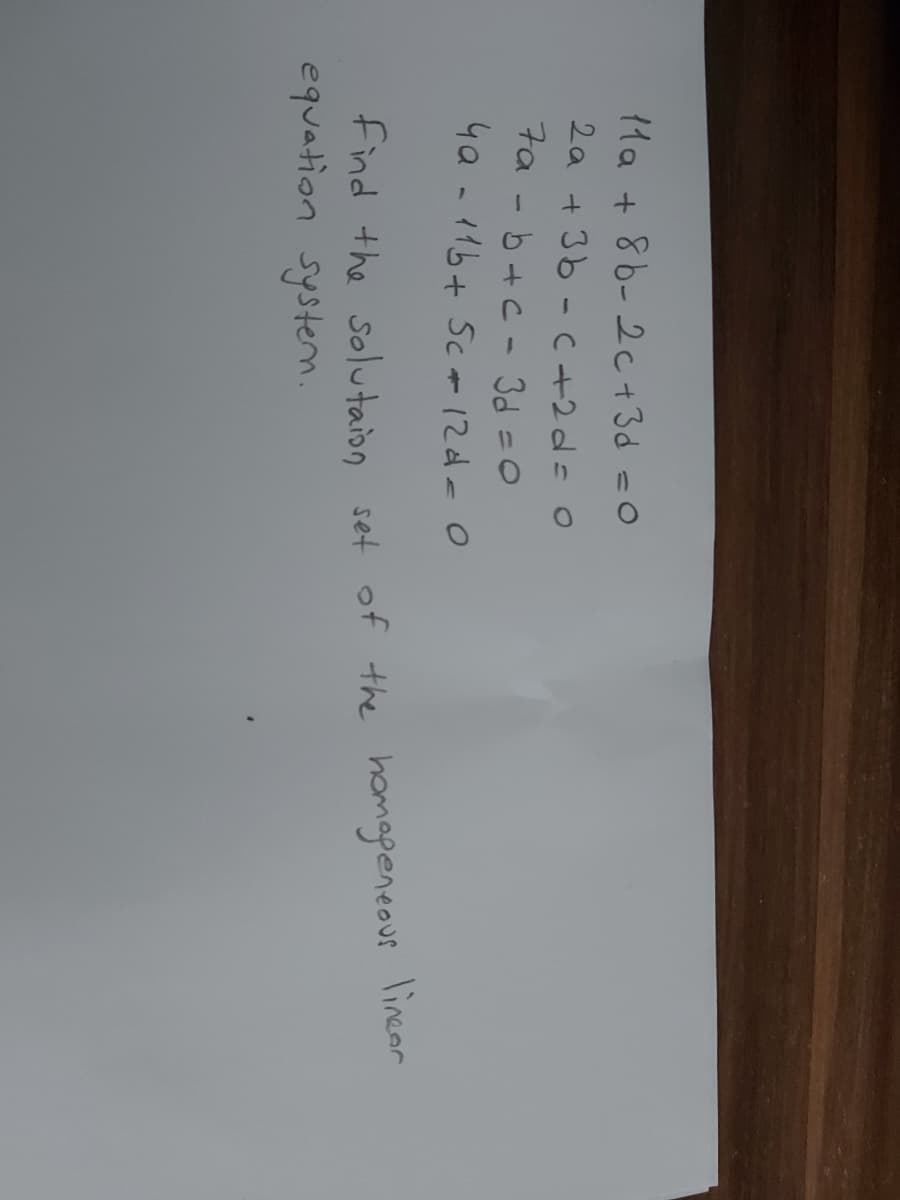 11a + 8b - 2c + 3d = 0
2a + 3b - c + 2d = 0
7a - b + c - 3d = 0
4a - 11b + 5c + 12d = 0
find the solutaion set of the homogeneous linear
equation system.